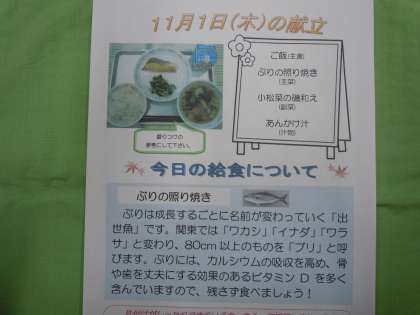 11月1日(木)の献立
ご飯(主食)
ぶりの照り焼き
(主菜)
小松菜の磯和え
(副菜)
あんかけ汁
(汁物)
盛りつけの
参考にして下さい。
今日の給食について
ぶりの照り焼き
ぶりは成長するごとに名前が変わっていく「出
世魚」です。関東では「ワカシ」「イナダ」「ワラ
サ」と変わり、80cm以上のものを「ブリ」と呼
びます。ぶりには、カルシウムの吸収を高め、骨
や歯を丈夫にする効果のあるビタミンDを多く
含んでいますので、残さず食べましょう！